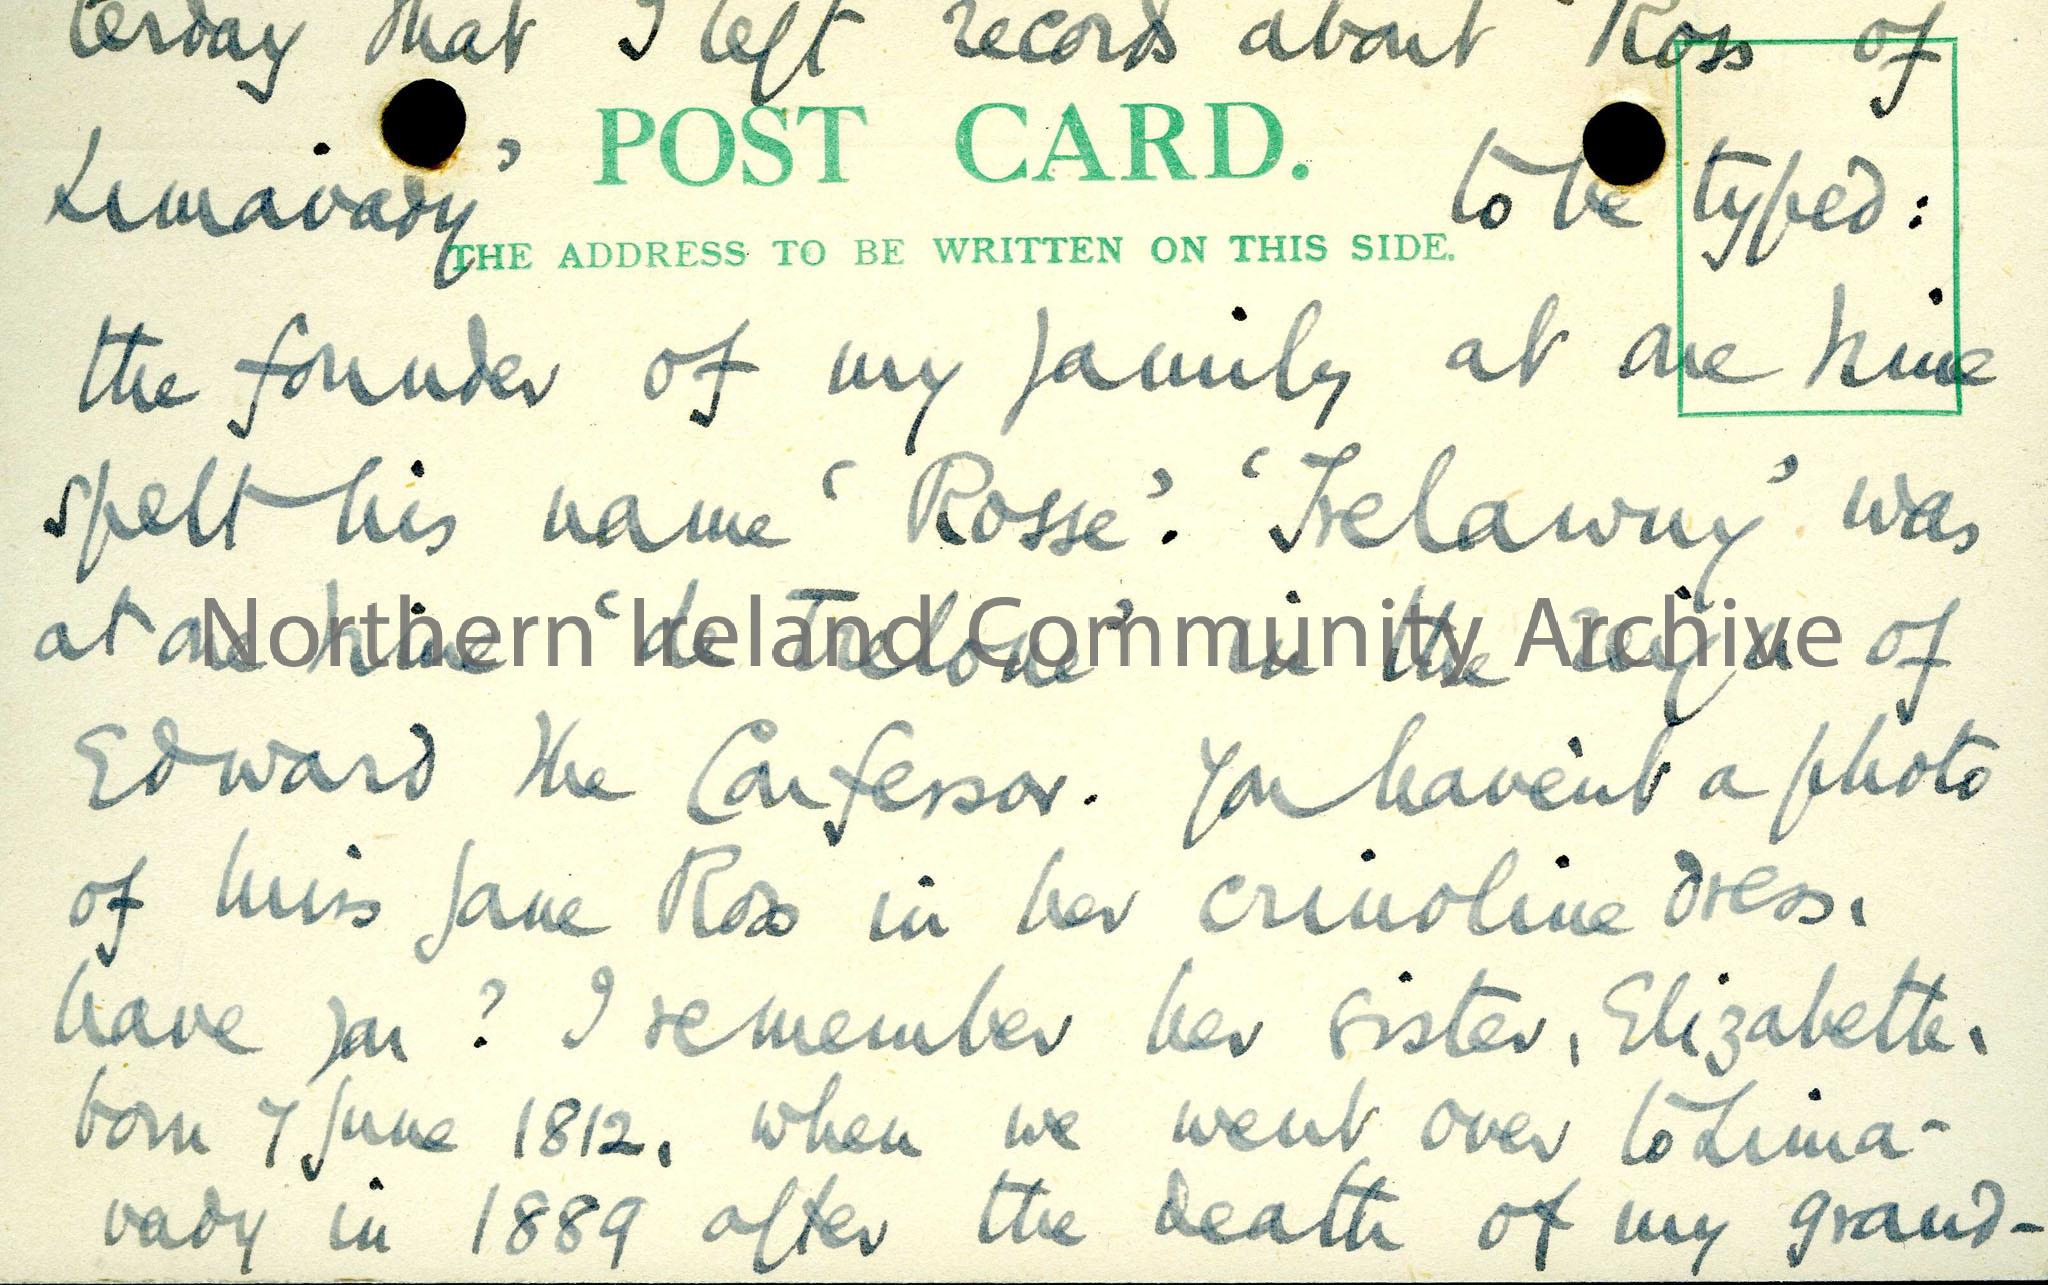 terday that I left record about 'Ross of
POST CARD.
Limavady' to be typed:
THE ADDRESS TO BE WRITTEN ON THIS SIDE.
the founder of my family at one time
spelt his name 'Rosse'. 'Trelawny' was
at one time 'de Trelone' in the reign of
Northern Ireland Community Archive
Edward the Confessor. You haven't a photo
of Miss Jane Ross in her crinoline dress,
have you? I remember her sister, Elizabeth,
born 7 June 1812, when we went over to Lima-
vady in 1889 after the death of my grand-